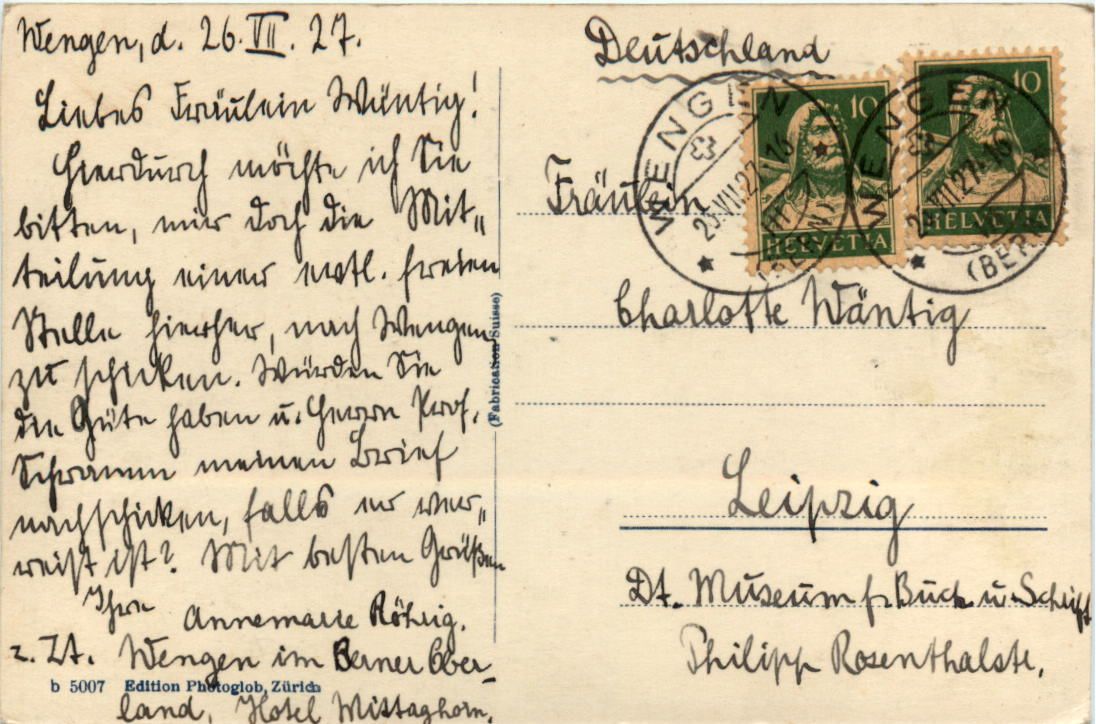 Wengen, d. 26. VII. 27.
Liebes Fräulein Wäntig!
Hierdurch möchte ich Sie
bitten, mir doch die Mit„
teilung einer evtl. freien
Stelle hierher, nach Wengen
zu schicken. Würden Sie
die Güte haben u. Herrn Prof.
Schramm meinen Brief
nachschicken, falls er ver„
reist ist? Mit besten Grüßen
Ihre
Annemarie Röhrig.
z. Zt. Wengen im Berner Ober-
land, Hotel Mittaghorn.
b 5007 Edition Photoglob, Zürich
(Fabrication Suisse)
Deutschland
Fräulein
Charlotte Wäntig
Leipzig
Dt. Museum f. Buch u. Schrift
Philipp Rosenthalstr.
10
HELVETIA
10
HELVETIA
WENGEN
VII.27-16
(BERN)
WENGEN
VII.27-16
(BERN)